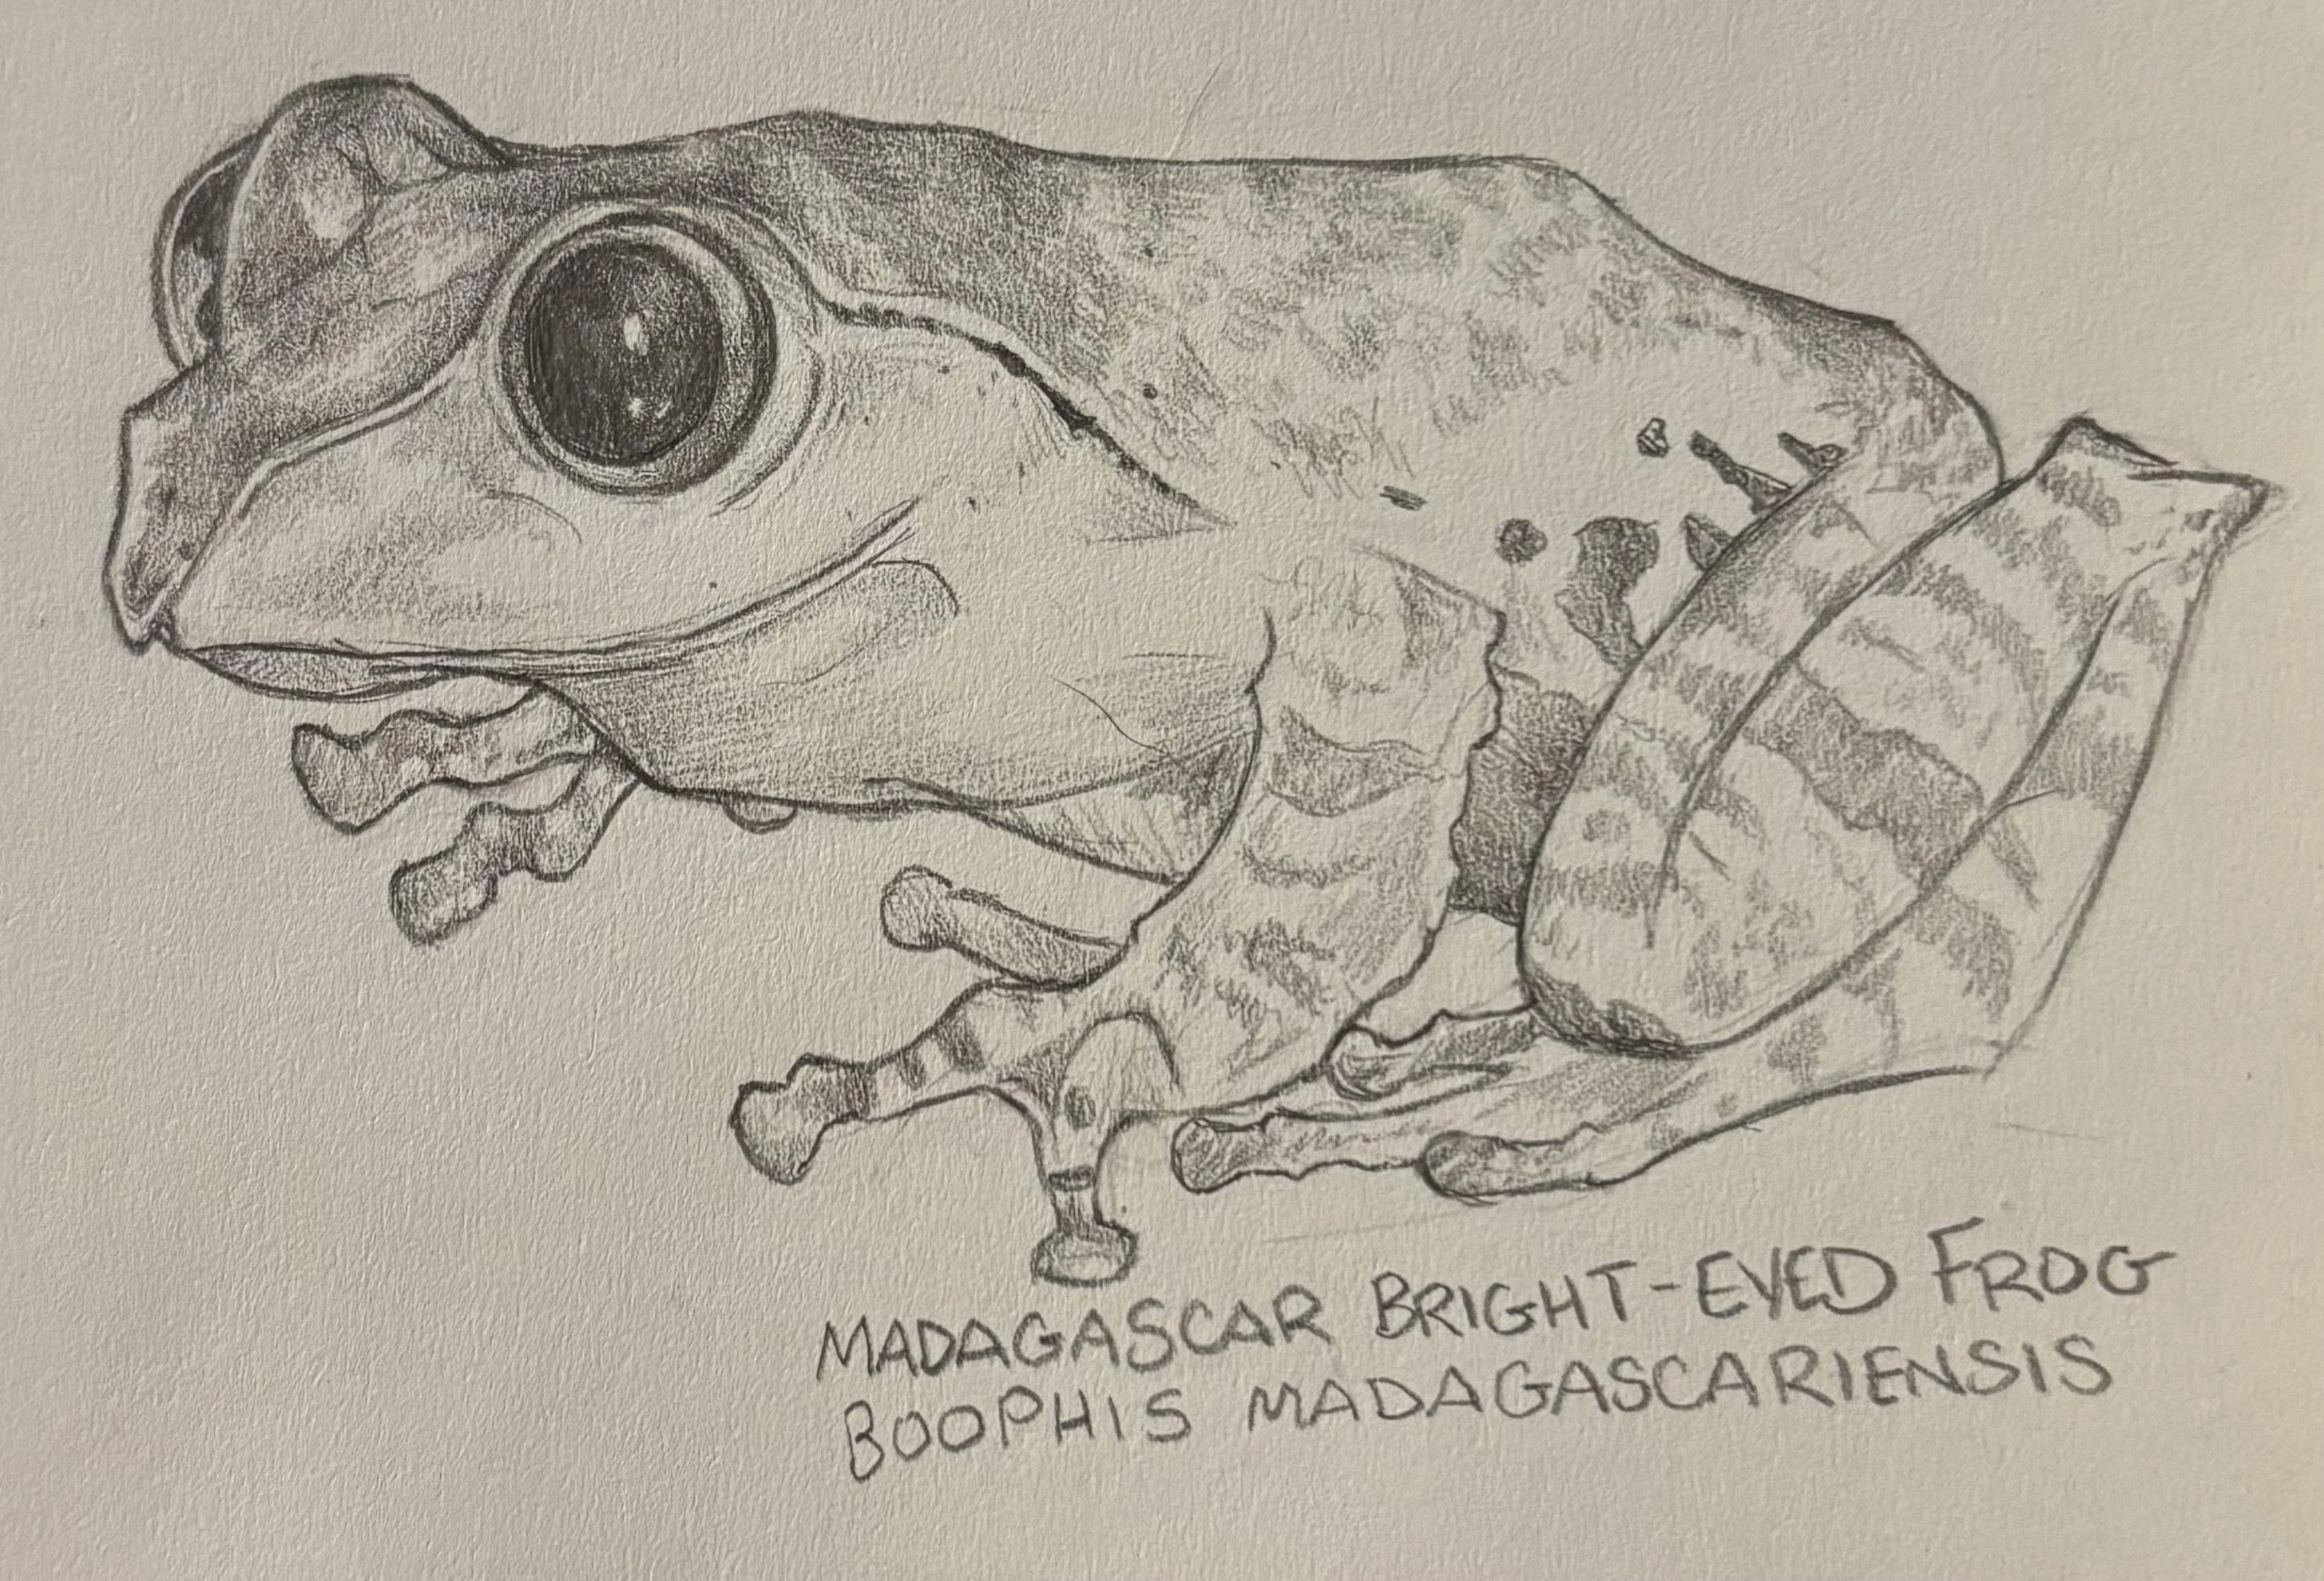 MADAGASCAR BRIGHT-EYED FROG
BOOPHIS MADAGASCARIENSIS